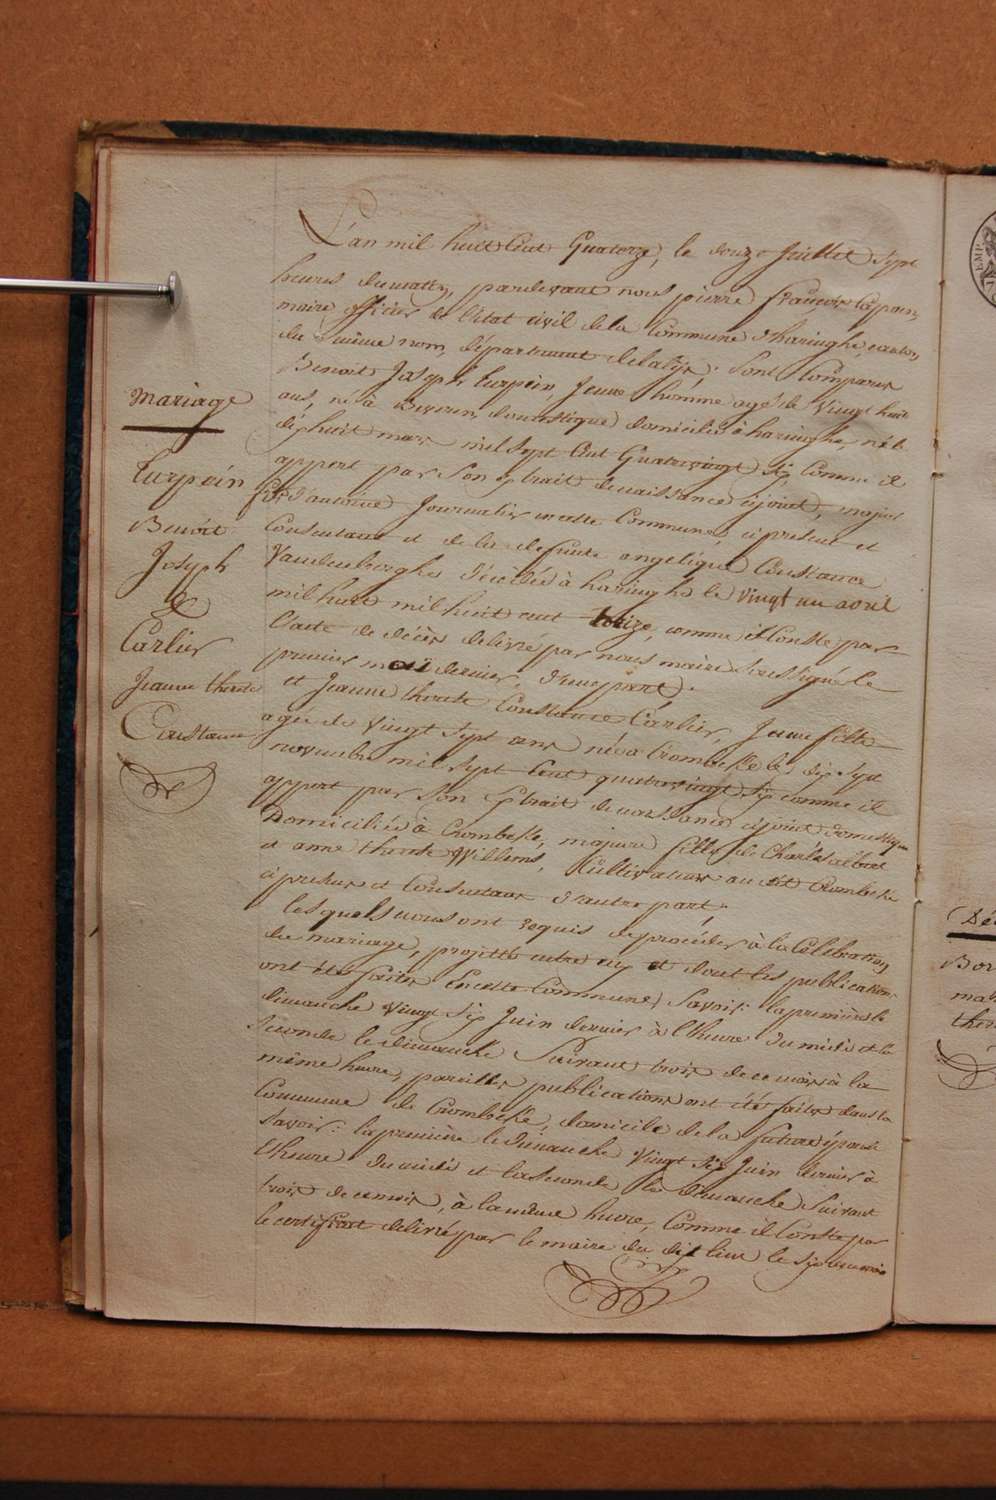 mariage
Turpein
Benoit
Joseph
&
Carlier
Jeanne therese
Constance
L'an mil huit Cent Quatorze, le douze Juillet Sept
heures dumatin, pardevant nous pierre françois
maire officier de l'état civil dela Commune d'haringhe, canton
du même nom, département delalys; Sont Comparus
Benoit Joseph Turpein, Jeune homme agé de Vingt huit
ans, né à domestique domicilié à haringhe, né le
dixhuit mars mil sept Cent Quatrevingt Six Comme il
appert par Son extrait denaissance cijoint, majeur
fils d'antoine Journalier en cette Commune, ci présent et
Consentant et de la defunte angelique Constance
Vandenberghe décédée à haringhe le vingt un avril
mil huit mil huit cent treize, comme il Conste par
l'acte de décès delivré par nous maire Soussigné le
premier mai dernier, d'une part.
et Jeanne therese Constance Carlier, Jeune fille
agée de Vingt Sept ans née à Crombeke le dix Sept
novembre mil sept Cent quatrevingt Six comme il
appert par Son extrait denaissance cijoint domestique
Domiciliée à Crombeke, majeure fille de Charles albert
et anne therese Willems, Cultivateurs au dit Crombeke
ci présens et Consentans d'autre part;
les quels nous ont requis deprocéder à la Célébration
du mariage, projetté entre eux et dont les publications
ont été faites Encette Commune, Savoir: la première le
dimanche Vingt Six Juin dernier à l'heure du midi et la
Seconde le dimanche Suivant trois de ce mois à la
même heure, pareilles publications ont été faites dans la
Commune de Crombeke, domicile de la future épouse
Savoir: la première le dimanche Vingt Six Juin dernier à
l'heure du midi et la Seconde le dimanche Suivant
trois de ce mois, à la même heure, Comme il Conste par
le certificat delivré par le maire du dit lieu le Six de ce mois